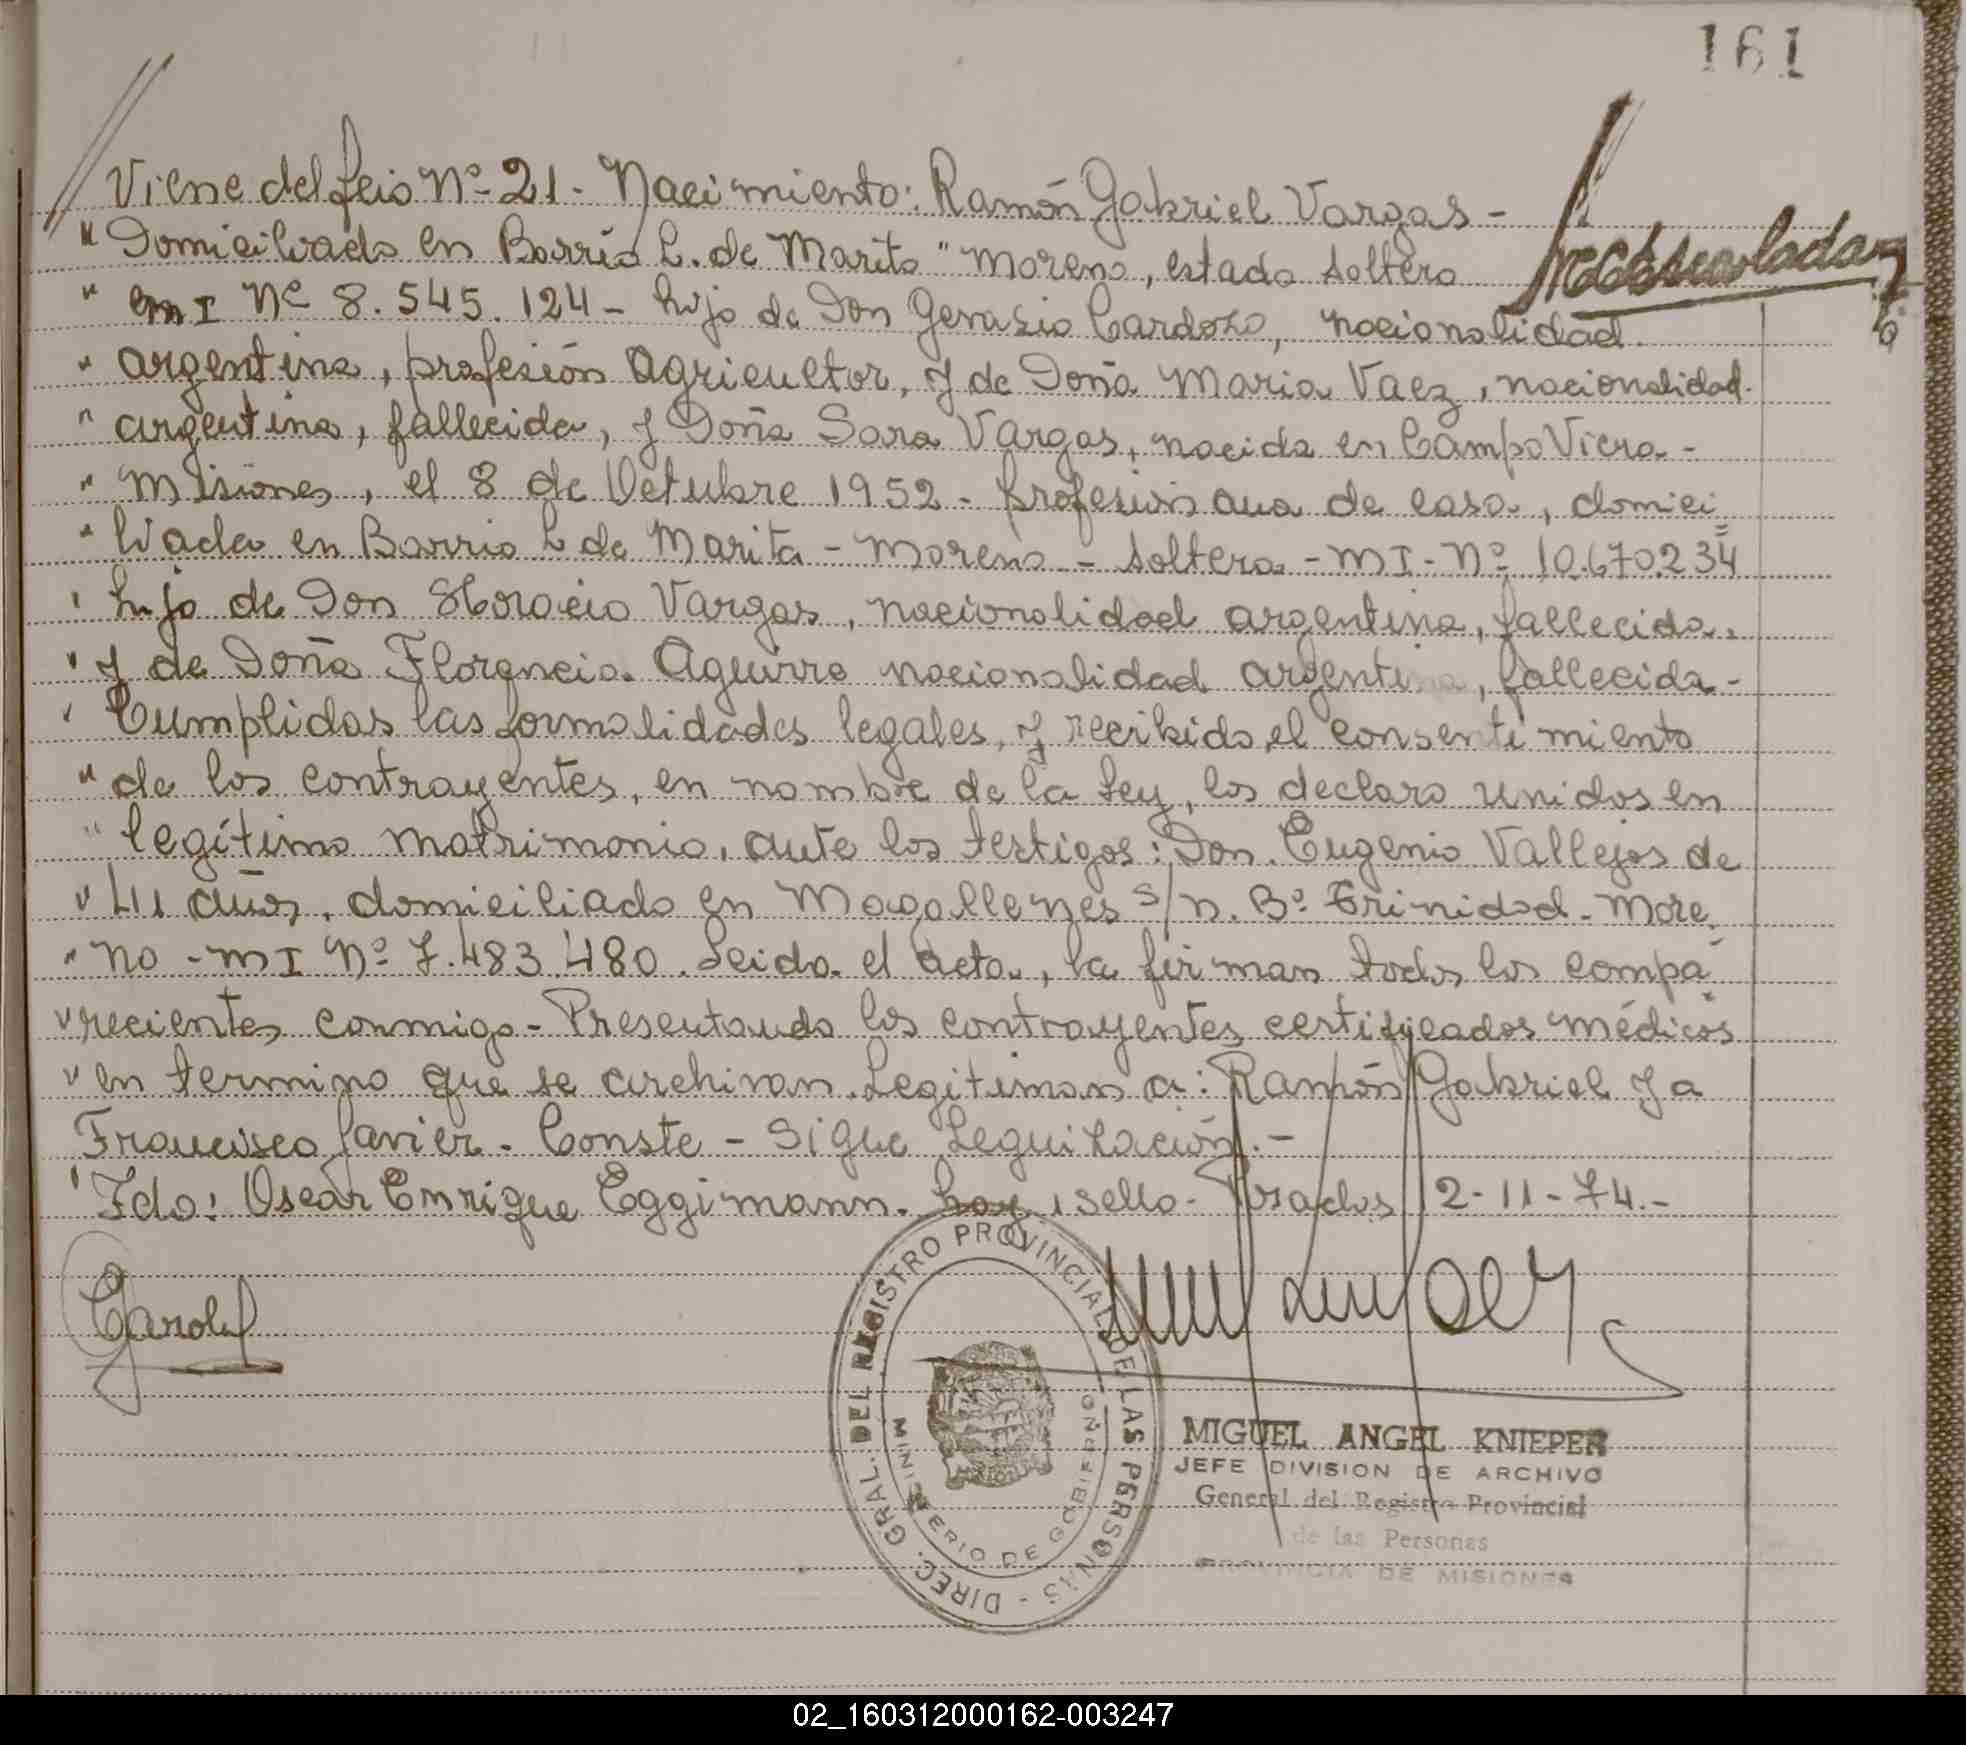 161
Viene del folio Nº 21 - Nacimiento: Ramón Gabriel Vargas -
" Domiciliado en Barrio L. de Marito " Moreno, estado soltero
" M I Nº 8.545.124 - hijo de Don Gervasio Cardozo, nacionalidad
" argentina, profesión agricultor, y de Doña Maria Vaez, nacionalidad
" argentina, fallecida, y Doña Sara Vargas, nacida en Campo Viera -
" Misiones, el 8 de Octubre 1952 - profesión ama de casa, domici
" liada en Barrio L de Marita - Moreno - soltera - M I - Nº 10.670.234
" hija de Don Horacio Vargas, nacionalidad argentina, fallecido,
" y de Doña Florencia Aguirre nacionalidad argentina, fallecida -
" Cumplidas las formalidades legales, y recibido el consentimiento
" de los contrayentes, en nombre de la Ley, los declaro unidos en
" legítimo matrimonio, ante los testigos: Don Eugenio Vallejos de
" 41 años, domiciliado en Magallenes s/n. Bº Trinidad - More
" no - M I Nº 7.483.480. Leida el acta, la firman todos los compa
" recientes conmigo - Presentando los contrayentes certificados médicos
" en termino que se archivan. Legitiman a: Ramón Gabriel y a
Francisco Javier - Conste - Sigue Legalización. -
" Fdo: Oscar Enrique Eggimann. hay 1 sello - Posadas 12-11-74. -
DIREC. GRAL. DEL REGISTRO PROVINCIAL DE LAS PERSONAS -
MINISTERIO DE GOBIERNO
MIGUEL ANGEL KNIEPER
JEFE DIVISION DE ARCHIVO
General del Registro Provincial
de las Personas
PROVINCIA DE MISIONES
02_160312000162-003247